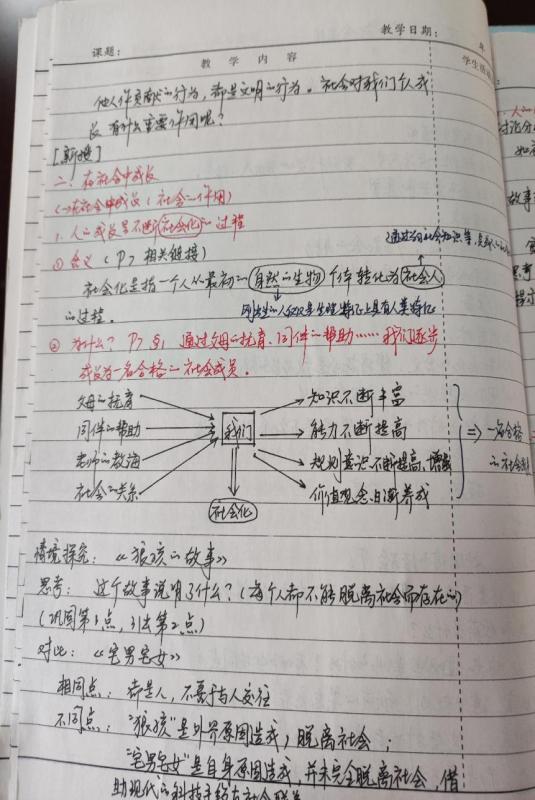 教学日期： 年
课题：
教 学 内 容
学生活
他人作贡献的行为，都是文明的行为。社会对我们个人成
长有什么重要作用呢？
[新授]
二、在社会中成长
(一)在社会中成长（社会的作用）
1、人的成长是不断社会化的过程
① 含义（P7 相关链接）
通过学习社会知识等，
社会化是指一个人从最初的自然的生物个体转化为社会人
的过程。
刚出生的人仅仅是生理特征上具有人类特征
② 为什么？P7 通过父母的抚育、同伴的帮助……我们逐步
成长为一名合格的社会成员。
父母的抚育
同伴的帮助
老师的教诲
社会的关系
我们
社会化
知识不断丰富
能力不断提高
规则意识不断提高、增强
价值观念日渐养成
⇒ 一名合格
的社会
情境探究：《狼孩的故事》
思考：这个故事说明了什么？（每个人都不能脱离社会而存在的）
（巩固第1点，引出第2点）
对比：《宅男宅女》
相同点：都是人，不善于与人交往
不同点："狼孩"是外界原因造成，脱离社会；
"宅男宅女"是自身原因造成，并未完全脱离社会，借
助现代的科技手段与社会联系